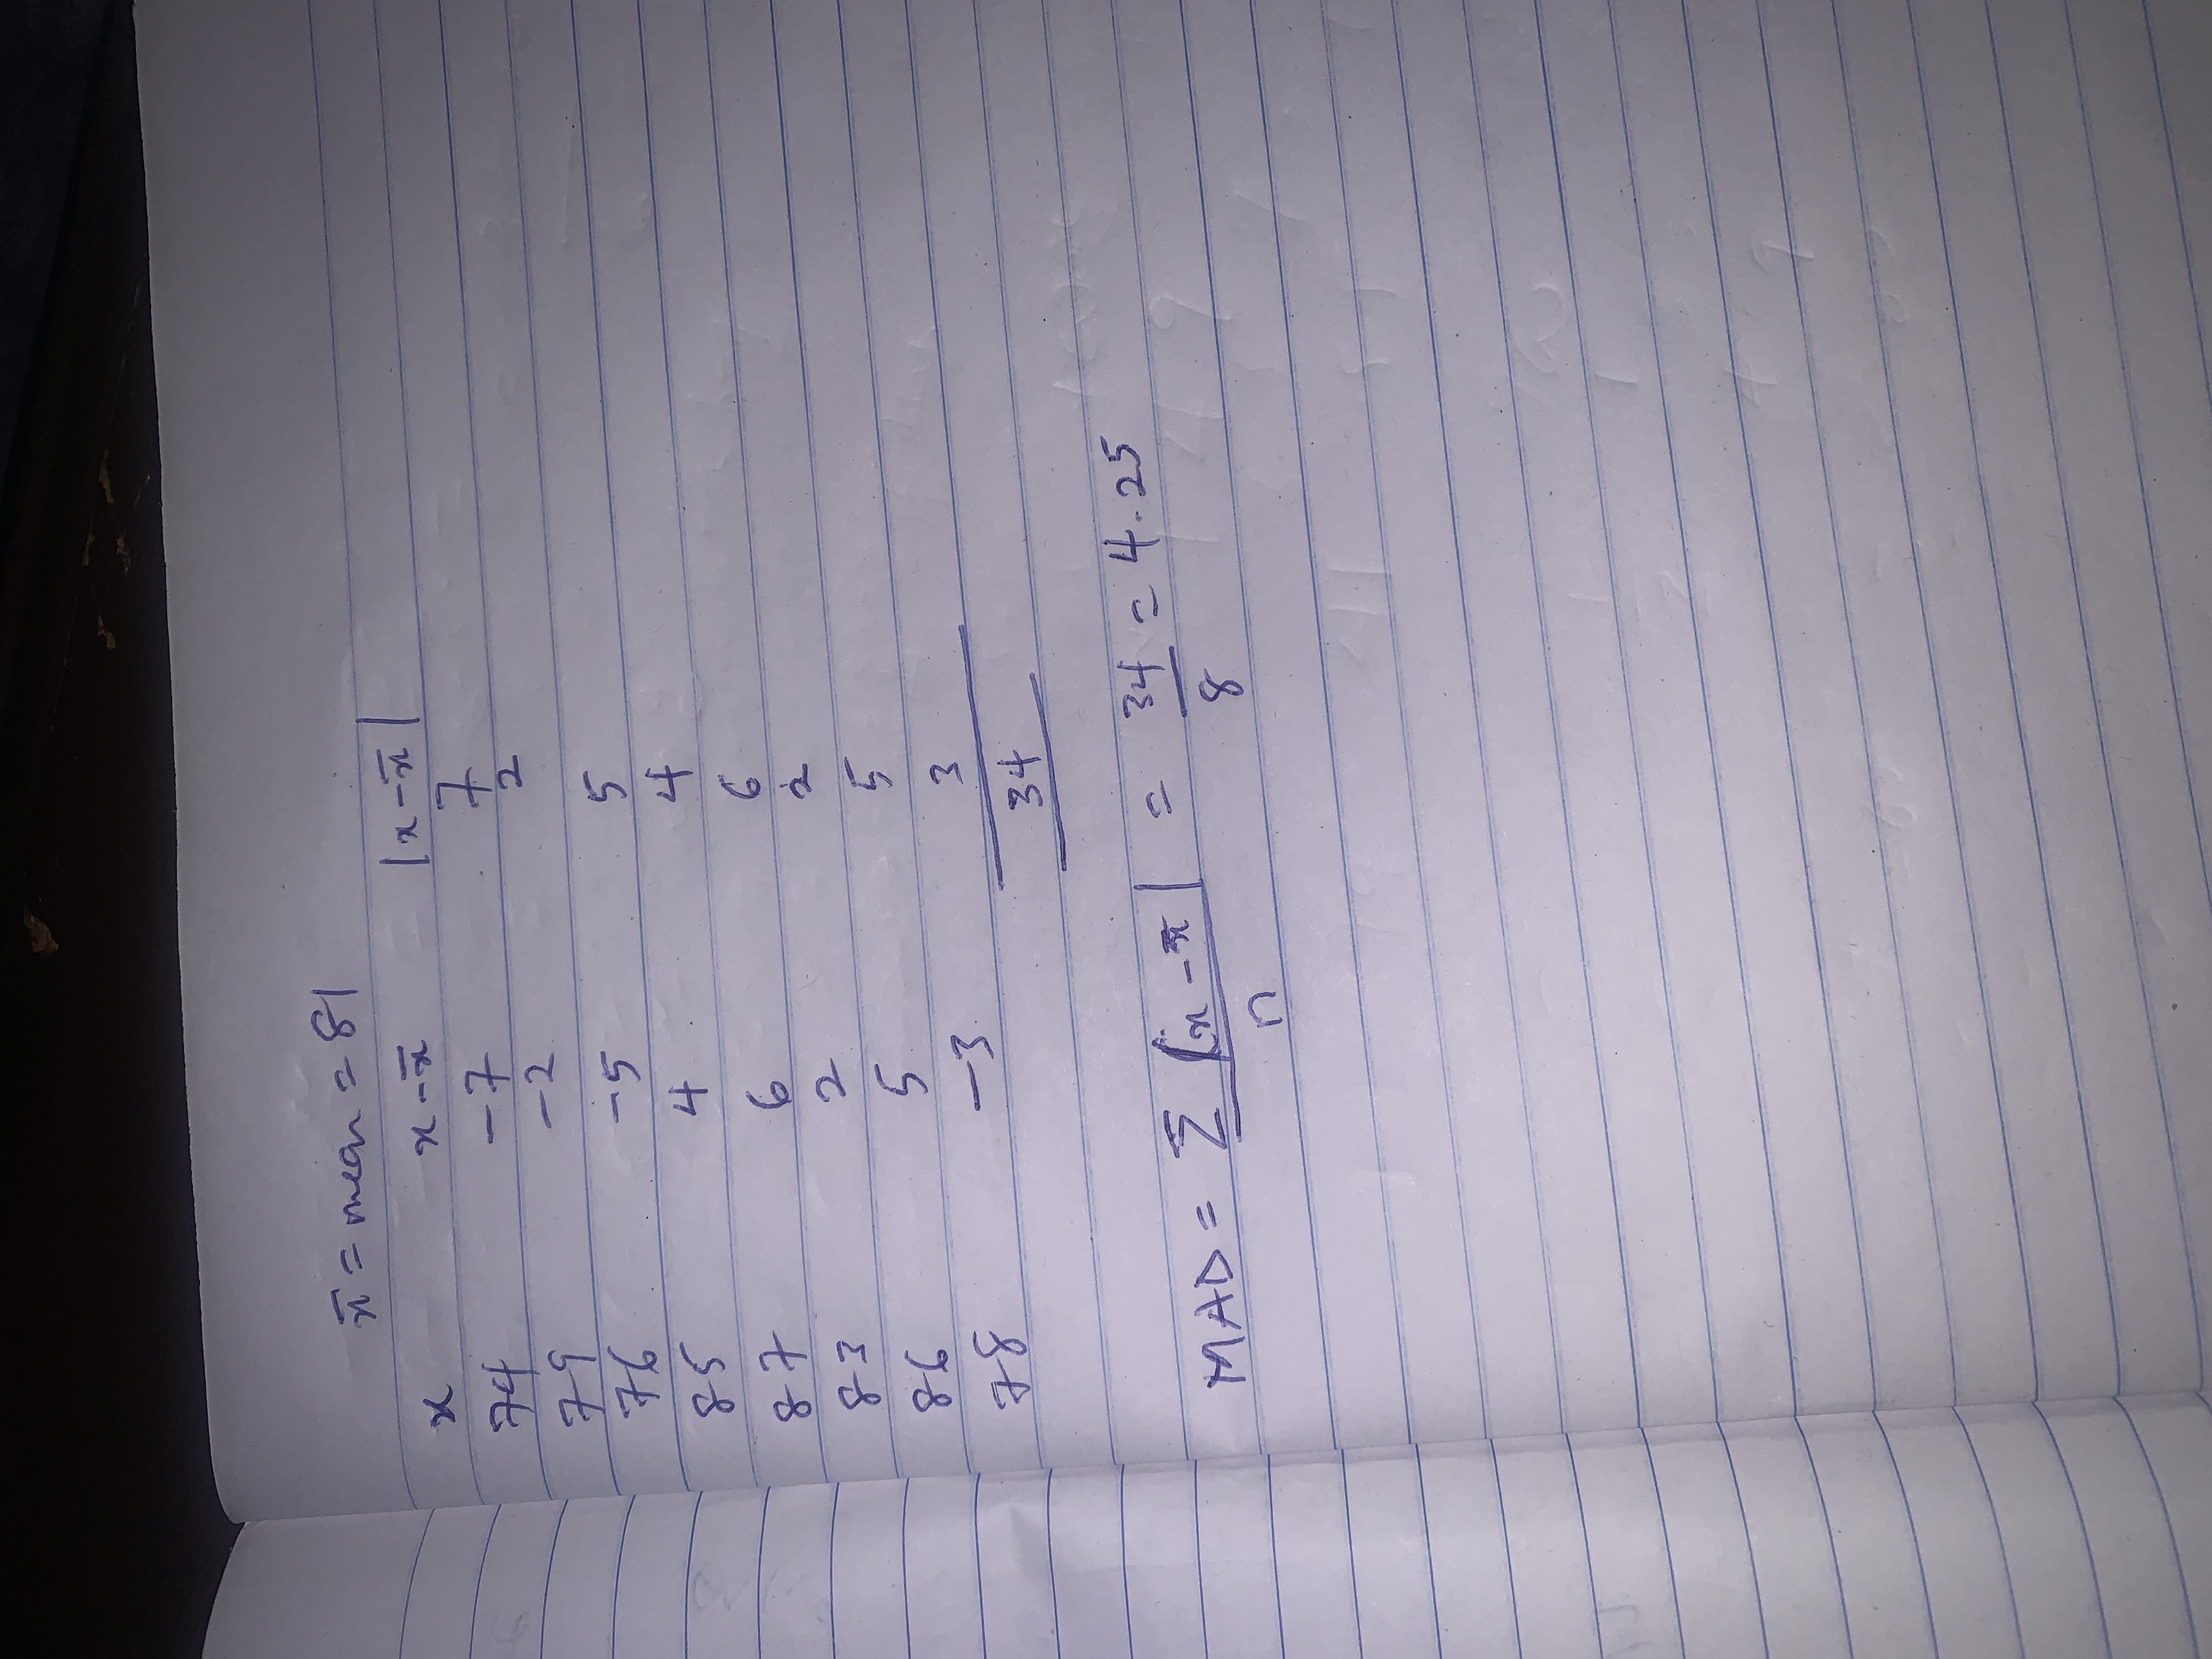 x̄ = mean = 81
x x-x̄ |x-x̄|
74 -7 7
79 -2 2
76 -5 5
85 4 4
87 6 6
83 2 2
86 5 5
78 -3 3
34
MAD = Σ|x-x̄| / n = 34/8 = 4.25